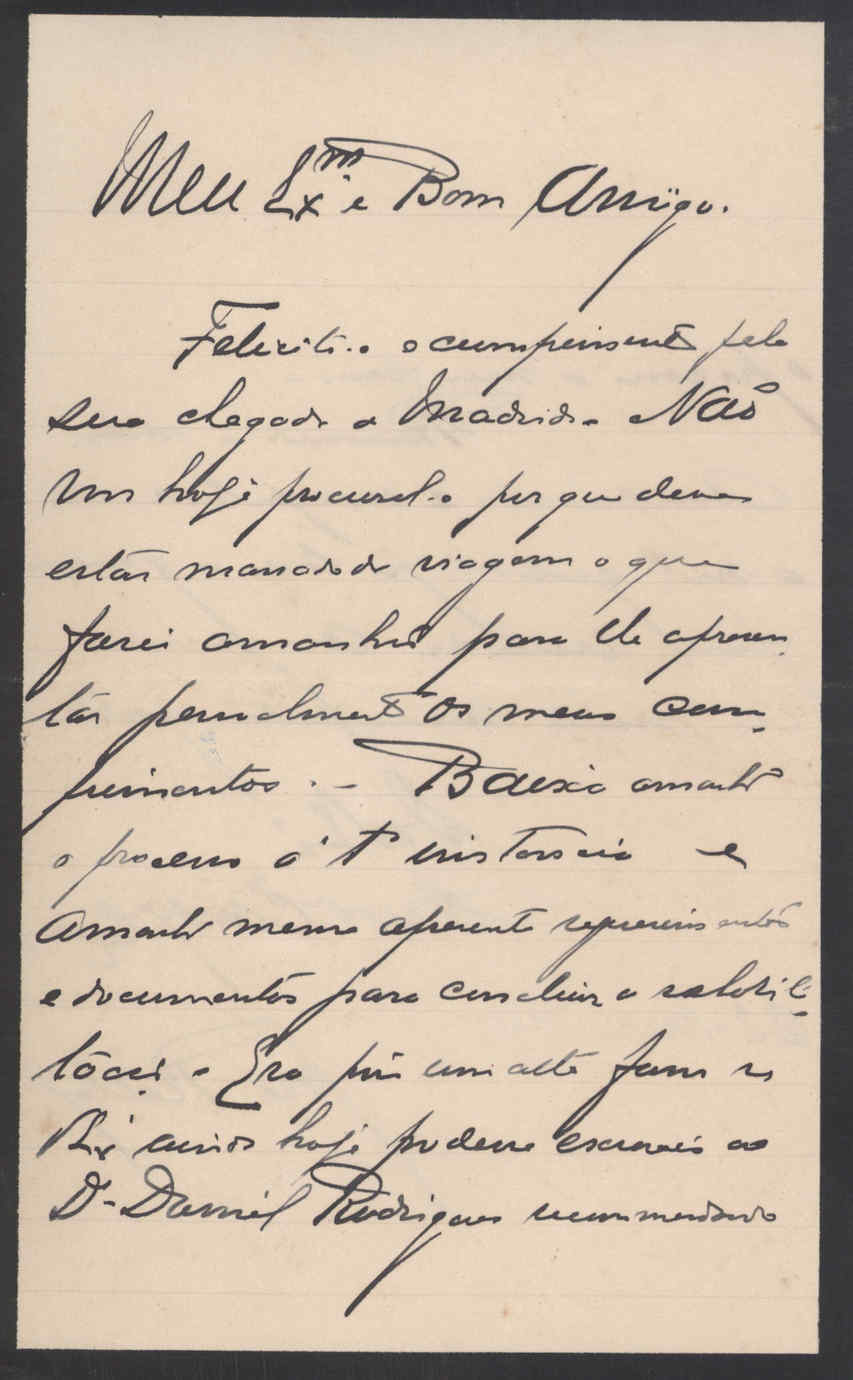 Meu Exmo e Bom Amigo.
Felicito-o e cumprimento pela
sua chegada a Madrid. Não
vou hoje procural-o porque deve
estar massado da viagem o que
farei amanhã para lhe apresen-
tar pessoalmente os meus cum-
primentos. - Baixa amanhã
o processo á 1ª instancia e
amanhã mesmo apresento requerimentos
e documentos para concluir a rehabili-
tação. Era pois um alto favor se
V. Exª ainda hoje podesse escrever ao
Dr. Daniel Rodrigues recommendando